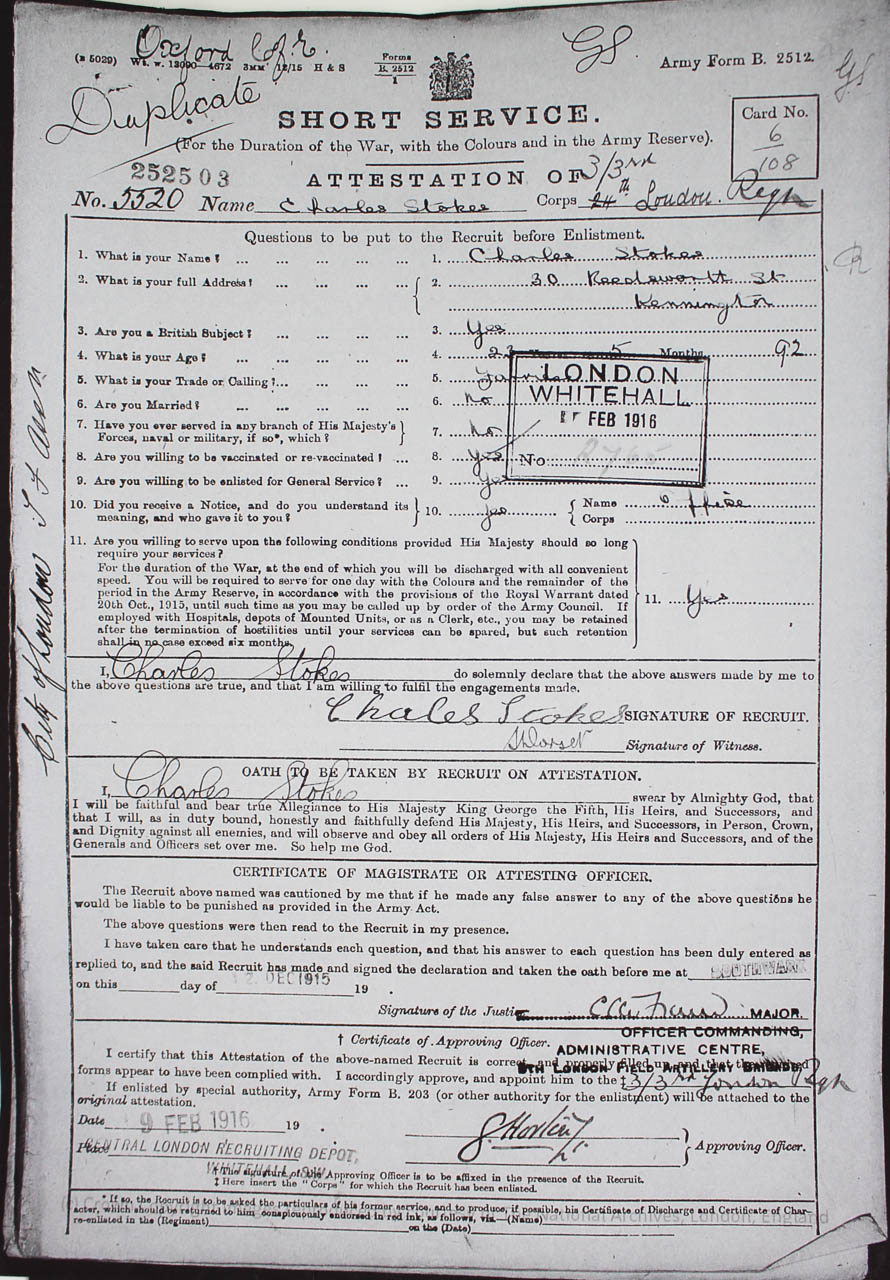 Oxford C of E.
(B 5029) Wt. w. 13090—4672 3MM 12/15 H & S
Forms
B. 2512
1
GS
Army Form B. 2512.
GS
Duplicate
SHORT SERVICE.
(For the Duration of the War, with the Colours and in the Army Reserve).
Card No.
6
108
252503
ATTESTATION OF
3/3rd
No. 5520 Name Charles Stokes Corps 24th London. Regt
Questions to be put to the Recruit before Enlistment.
1. What is your Name? ... ... ... ... 1. Charles Stokes
2. What is your full Address? ... ... ... 2. 30 Reedsworth St
Kennington
3. Are you a British Subject? ... ... ... 3. Yes
4. What is your Age? ... ... ... ... 4. 23 Years 5 Months 92
5. What is your Trade or Calling?... ... ... 5.
6. Are you Married? ... ... ... ... 6. No
7. Have you ever served in any branch of His Majesty's
Forces, naval or military, if so*, which? 7. No
8. Are you willing to be vaccinated or re-vaccinated? ... 8. Yes
9. Are you willing to be enlisted for General Service? ... 9. Yes
LONDON
WHITEHALL
FEB 1916
No
10. Did you receive a Notice, and do you understand its
meaning, and who gave it to you? 10. Yes Name Office
Corps
11. Are you willing to serve upon the following conditions provided His Majesty should so long
require your services?
For the duration of the War, at the end of which you will be discharged with all convenient
speed. You will be required to serve for one day with the Colours and the remainder of the
period in the Army Reserve, in accordance with the provisions of the Royal Warrant dated
20th Oct., 1915, until such time as you may be called up by order of the Army Council. If
employed with Hospitals, depots of Mounted Units, or as a Clerk, etc., you may be retained
after the termination of hostilities until your services can be spared, but such retention
shall in no case exceed six months.
11. Yes
City of London
I, Charles Stokes do solemnly declare that the above answers made by me to
the above questions are true, and that I am willing to fulfil the engagements made.
Chales Stokes SIGNATURE OF RECRUIT.
Signature of Witness.
OATH TO BE TAKEN BY RECRUIT ON ATTESTATION.
I, Charles Stokes swear by Almighty God, that
I will be faithful and bear true Allegiance to His Majesty King George the Fifth, His Heirs, and Successors, and
that I will, as in duty bound, honestly and faithfully defend His Majesty, His Heirs, and Successors, in Person, Crown,
and Dignity against all enemies, and will observe and obey all orders of His Majesty, His Heirs and Successors, and of the
Generals and Officers set over me. So help me God.
CERTIFICATE OF MAGISTRATE OR ATTESTING OFFICER.
The Recruit above named was cautioned by me that if he made any false answer to any of the above questions he
would be liable to be punished as provided in the Army Act.
The above questions were then read to the Recruit in my presence.
I have taken care that he understands each question, and that his answer to each question has been duly entered as
replied to, and the said Recruit has made and signed the declaration and taken the oath before me at SOUTHWARK
on this day of 2. DEC 1915 19 .
Signature of the Justice MAJOR.
OFFICER COMMANDING,
† Certificate of Approving Officer.
ADMINISTRATIVE CENTRE,
8TH LONDON FIELD ARTILLERY BRIGADE.
I certify that this Attestation of the above-named Recruit is correct, and properly filled up, and that the required
forms appear to have been complied with. I accordingly approve, and appoint him to the ‡ 3/3rd London Regt
If enlisted by special authority, Army Form B. 203 (or other authority for the enlistment) will be attached to the
original attestation.
Date 9 FEB 1916 19 .
Place CENTRAL LONDON RECRUITING DEPOT,
WHITEHALL, S.W.
Approving Officer.
† The signature of the Approving Officer is to be affixed in the presence of the Recruit.
‡ Here insert the "Corps" for which the Recruit has been enlisted.
* If so, the Recruit is to be asked the particulars of his former service, and to produce, if possible, his Certificate of Discharge and Certificate of Char-
acter, which should be returned to him conspicuously endorsed in red ink, as follows, viz.—(Name)
re-enlisted in the (Regiment) on the (Date)
National Archives, London, England